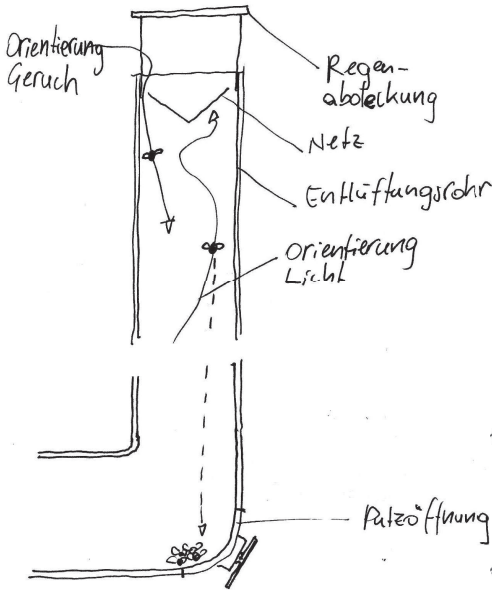 Orientierung
Geruch
Regen-
abdeckung
Netz
Entlüftungsrohr
Orientierung
Licht
Putzöffnung